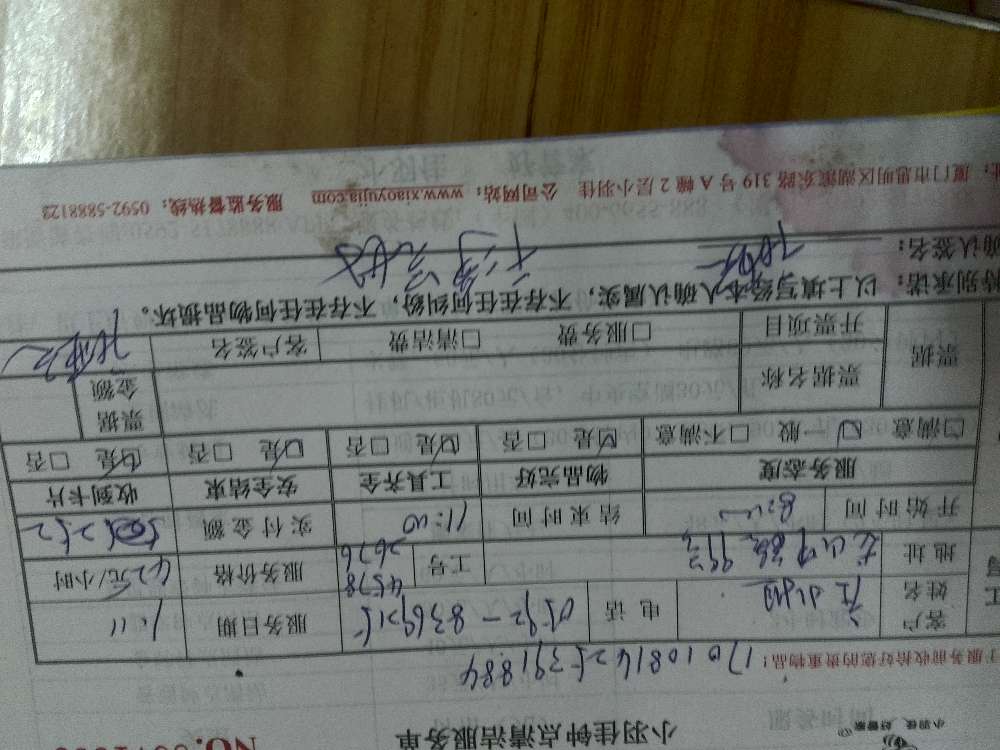 小羽佳 好管家
小羽佳钟点清洁服务单
NO.
服务前收拾好您的贵重物品! 17010814252391884
客户姓名 电话 0592-8369215 服务日期 1.11
地址 工号 4578 2676 服务价格 42元/小时
开始时间 8:00 结束时间 11:00 实付金额 252
服务态度 物品完好 工具齐全 安全结束 收到卡片
□满意 ☑一般 □不满意 ☑是 □否 ☑是 □否 ☑是 □否 ☑是 □否
票据 票据名称 票据金额
开票项目 □服务费 □清洁费 客户签名
特别承诺: 以上填写经本人确认属实,不存在任何纠纷,不存在任何物品损坏。
确认签名:
址: 厦门市思明区湖滨东路319号A幢2层小羽佳 公司网站: www.xiaoyujia.com 服务监督热线: 0592-5888123